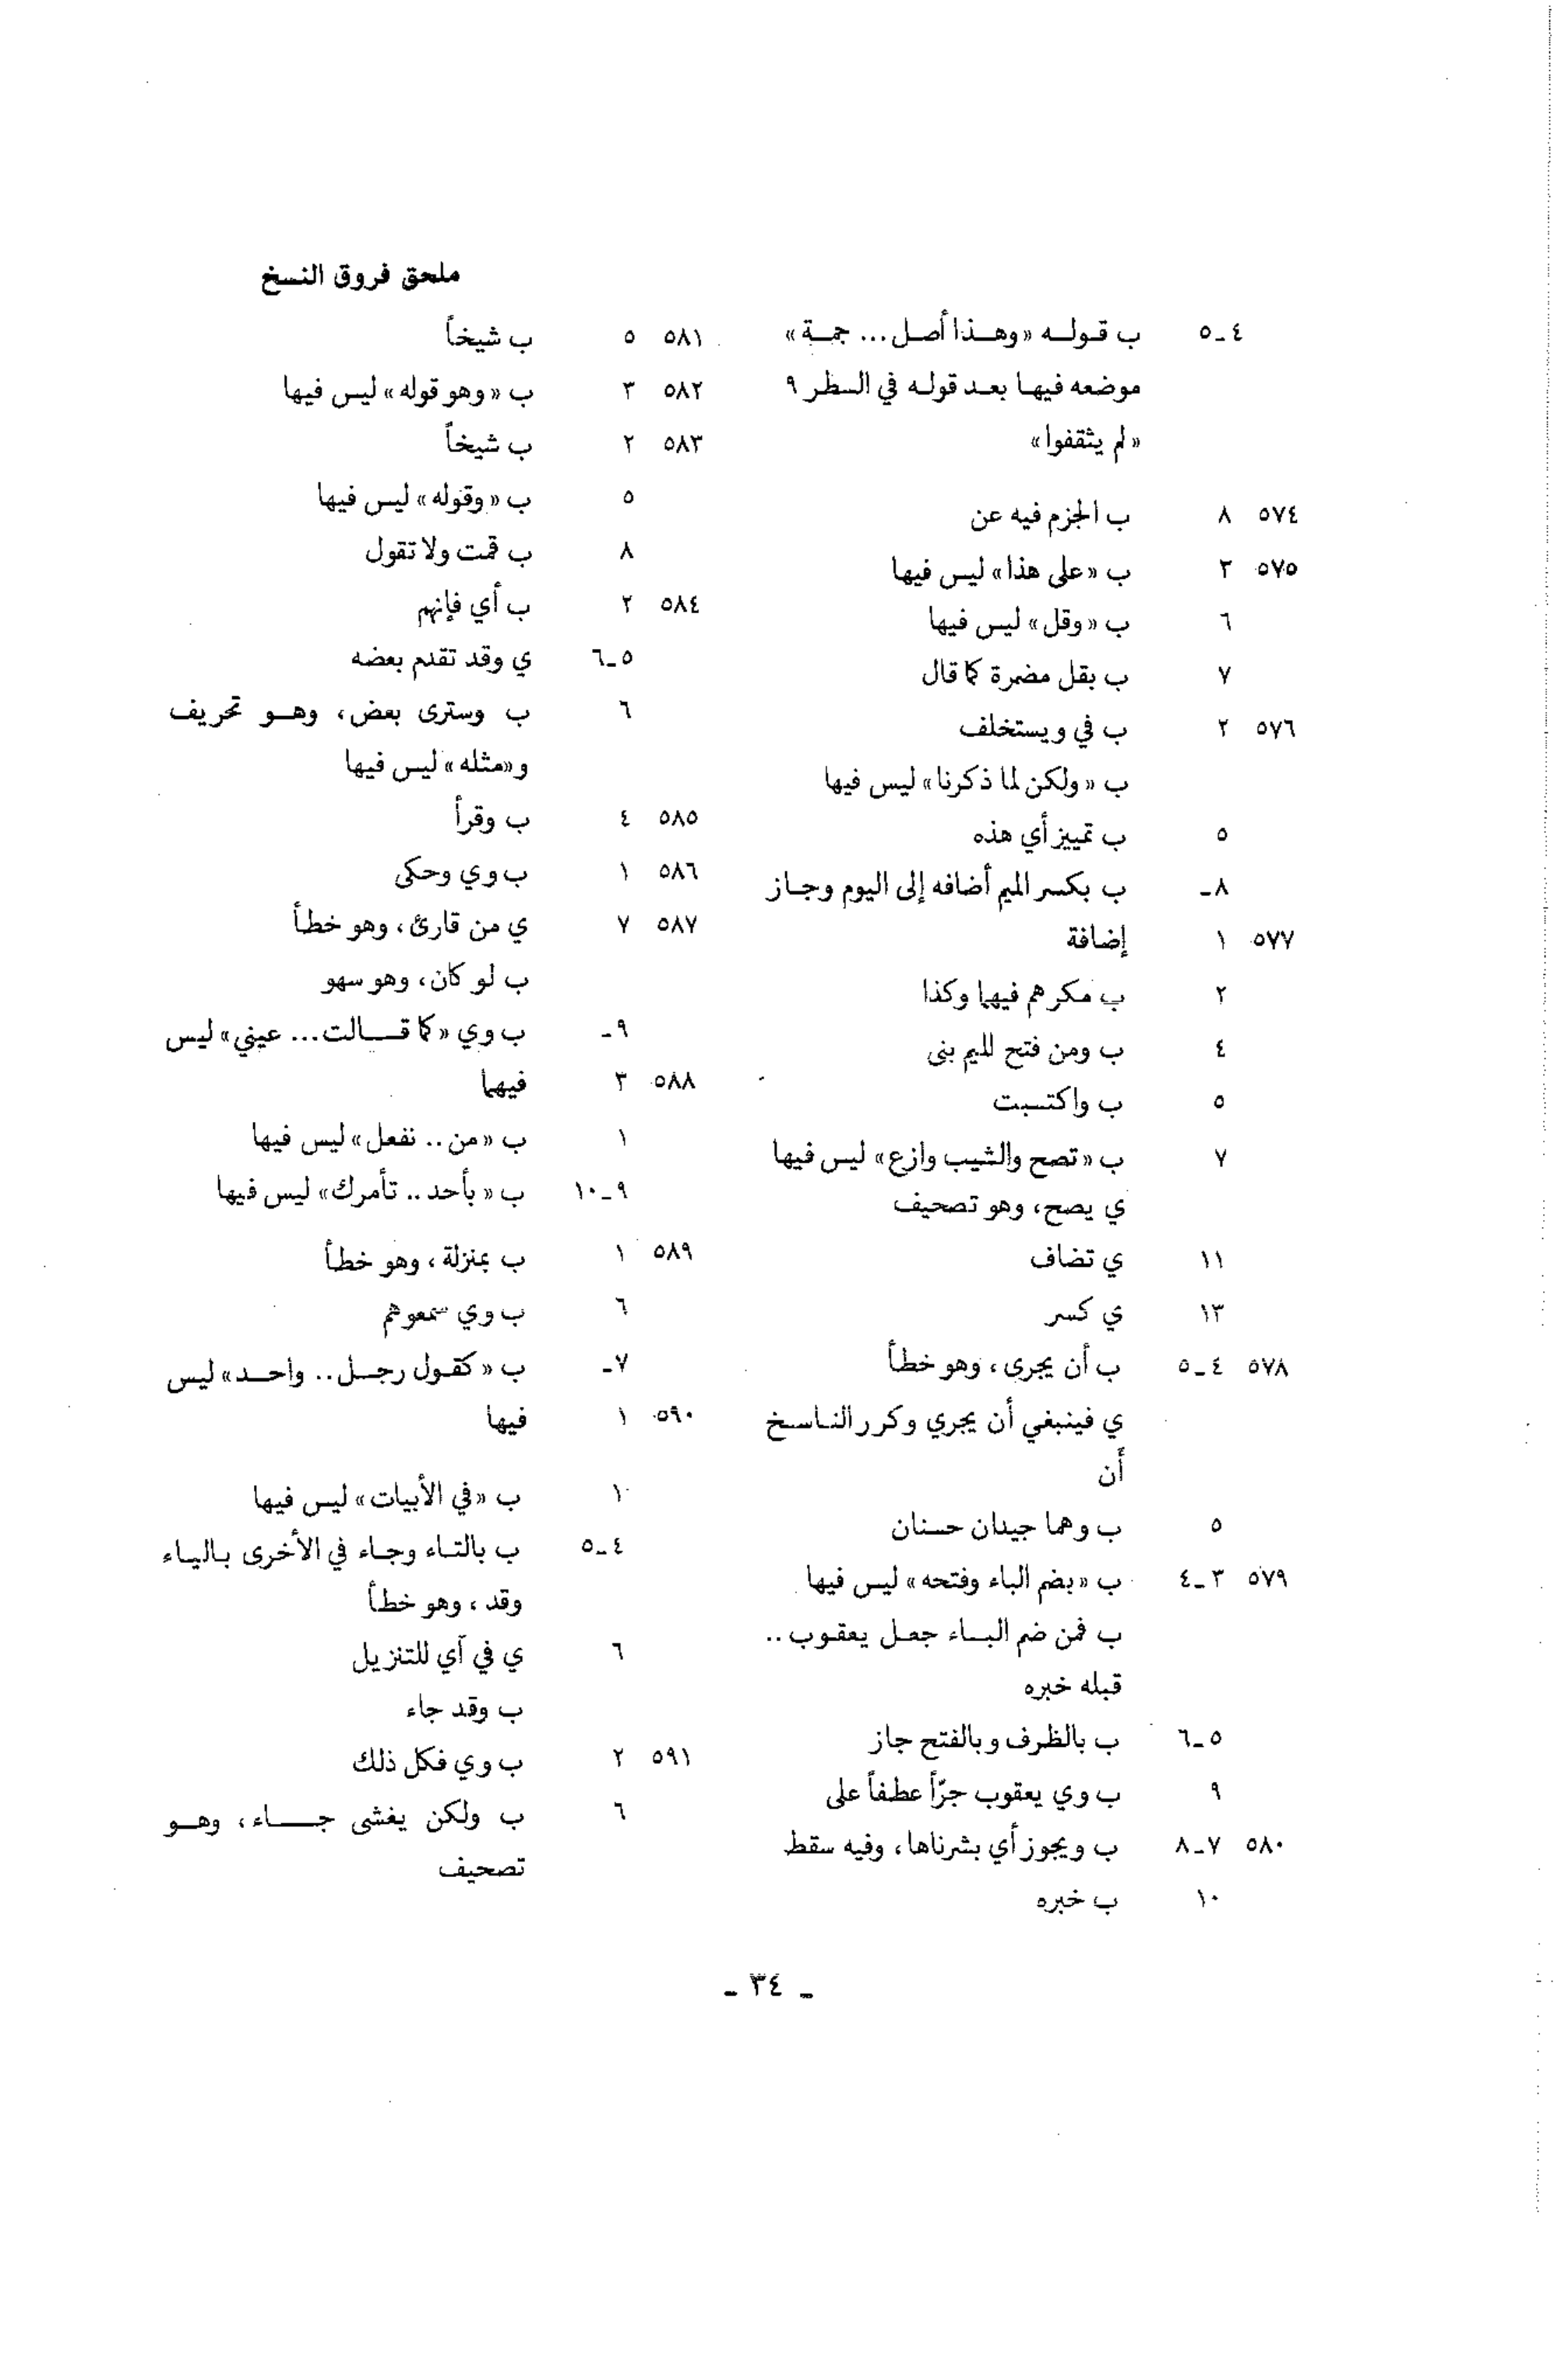 ملحق فروق النسخ
٤ـ٥ ب قولـه «وهـذا أصل... جمـة»
موضعه فيهـا بعـد قولـه في السطر ٩
«لم يثقفوا»
٥٧٤ ٨ ب الجزم فيه عن
٥٧٥ ٣ ب «على هذا» ليس فيها
٦ ب «وقل» ليس فيها
٧ ب بقل مضمرة كما قال
٥٧٦ ٢ ب في ويستخلف
ب «ولكن لما ذكرنا» ليس فيها
٥ ب تمييز أي هذه
٨ـ ب بكسر الميم أضافه إلى اليوم وجـاز
٥٧٧ ١ إضافة
٢ ب مكرهم فيهما وكذا
٤ ب ومن فتح للميم بنى
٥ ب واكتسبت
٧ ب «تصح والشيب وازع» ليس فيها
ي يصح، وهو تصحيف
١١ ي تضاف
١٣ ي كسر
٥٧٨ ٤ـ٥ ب أن يجرى، وهو خطأ
ي فينبغي أن يجري وكرر النـاسـخ
أن
٥ ب وهما جيدان حسنان
٥٧٩ ٣ـ٤ ب «بضم الباء وفتحه» ليس فيها
ب فمن ضم البـاء جعـل يعقـوب..
قبله خبره
٥ـ٦ ب بالظرف وبالفتح جاز
٩ ب وي يعقوب جرّاً عطفاً على
٥٨٠ ٧ـ٨ ب ويجوز أي بشرناها، وفيه سقط
١٠ ب خبره
٥٨١ ٥ ب شيخاً
٥٨٢ ٣ ب «وهو قوله» ليس فيها
٥٨٣ ٢ ب شيخاً
٥ ب «وقوله» ليس فيها
٨ ب قمت ولا تقول
٥٨٤ ٢ ب أي فإنهم
٥ـ٦ ي وقد تقدم بعضه
٦ ب وسترى بعض، وهـو تحريف
و«مثله» ليس فيها
٥٨٥ ٤ ب وقرأ
٥٨٦ ١ ب وي وحكى
٥٨٧ ٧ ي من قارئ، وهو خطأ
ب لو كان، وهو سهو
٩ـ ب وي «كما قـالت... عيني» ليس
٥٨٨ ٣ فيهما
١ ب «من.. نفعل» ليس فيها
٩ـ١٠ ب «بأحد.. تأمرك» ليس فيها
٥٨٩ ١ ب بمنزلة، وهو خطأ
٦ ب وي سمعوهم
٧ـ ب «كقـول رجـل.. واحـد» ليس
٥٩٠ ١ فيها
١ ب «في الأبيات» ليس فيها
٤ـ٥ ب بالتـاء وجـاء في الأخرى بـاليـاء
وقد، وهو خطأ
٦ ي في آي للتنزيل
ب وقد جاء
٥٩١ ٢ ب وي فكل ذلك
٦ ب ولكن يغشى جـاء، وهـو
تصحيف
ـ ٣٤ ـ